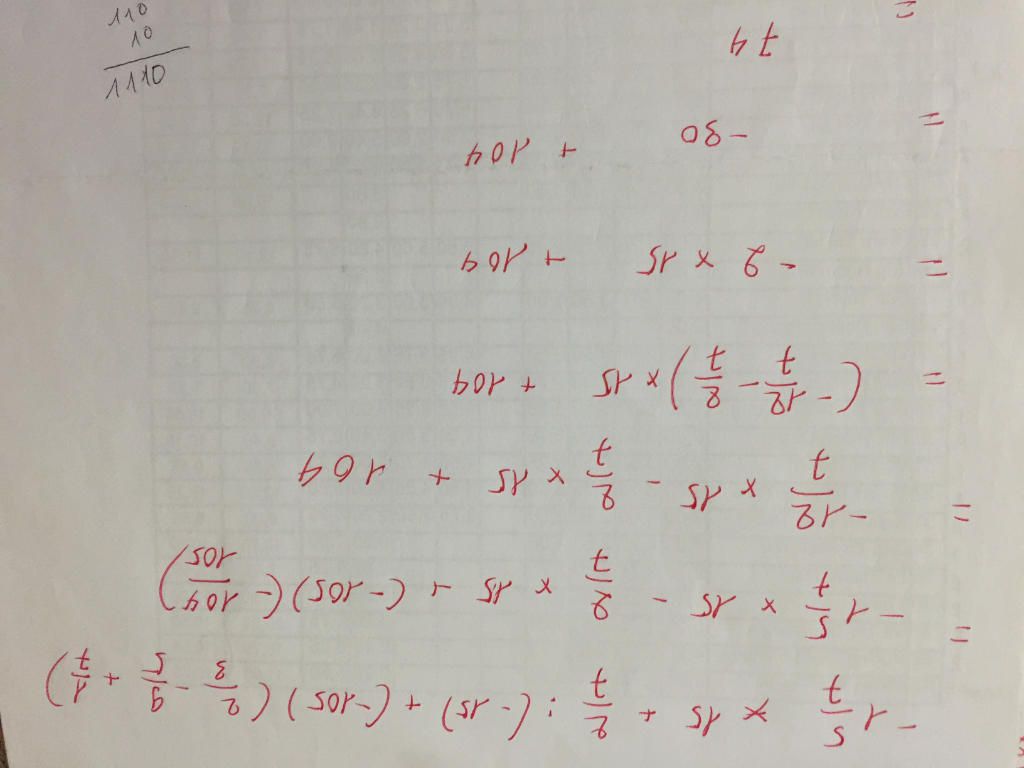 -1 5/7 × 15 + 2/7 : (-15) + (-105)(2/3 - 9/5 + 1/7)
= -1 5/7 × 15 - 2/7 × 15 + (-105)(-104/105)
= -12/7 × 15 - 2/7 × 15 + 104
= (-12/7 - 2/7) × 15 + 104
= -2 × 15 + 104
= -30 + 104
= 74
110
10
1110